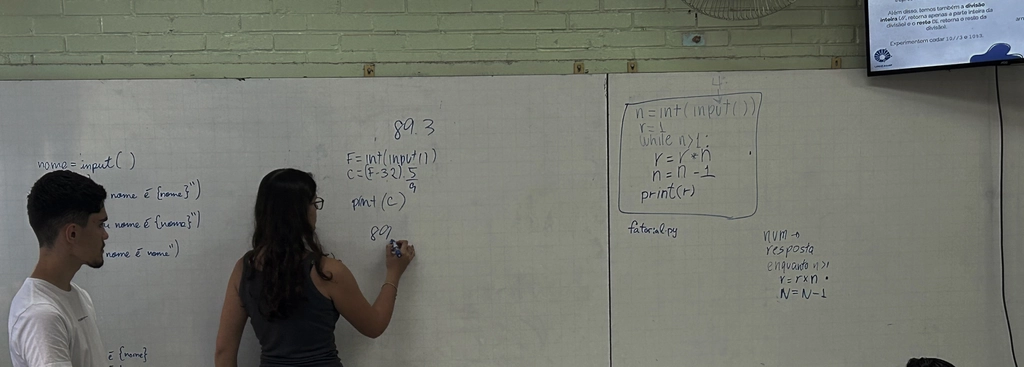 nome = input( )
nome é {nome}")
u nome é {nome}")
nome é nome")
é {nome}
89.3
F = int(input())
C = (F-32).5
9
print (C)
89
4
n = int(input())
r = 1
while n>1:
r = r * n
n = n - 1
print(r)
fatorial.py
num →
resposta
enquanto n>1
r = r x n
N = N - 1
Além disso, temos também a divisão
inteira (//, retorna apenas a parte inteira da
divisão) e o resto (%, retorna o resto da
divisão).
Experimentem rodar 10//3 e 10%3.